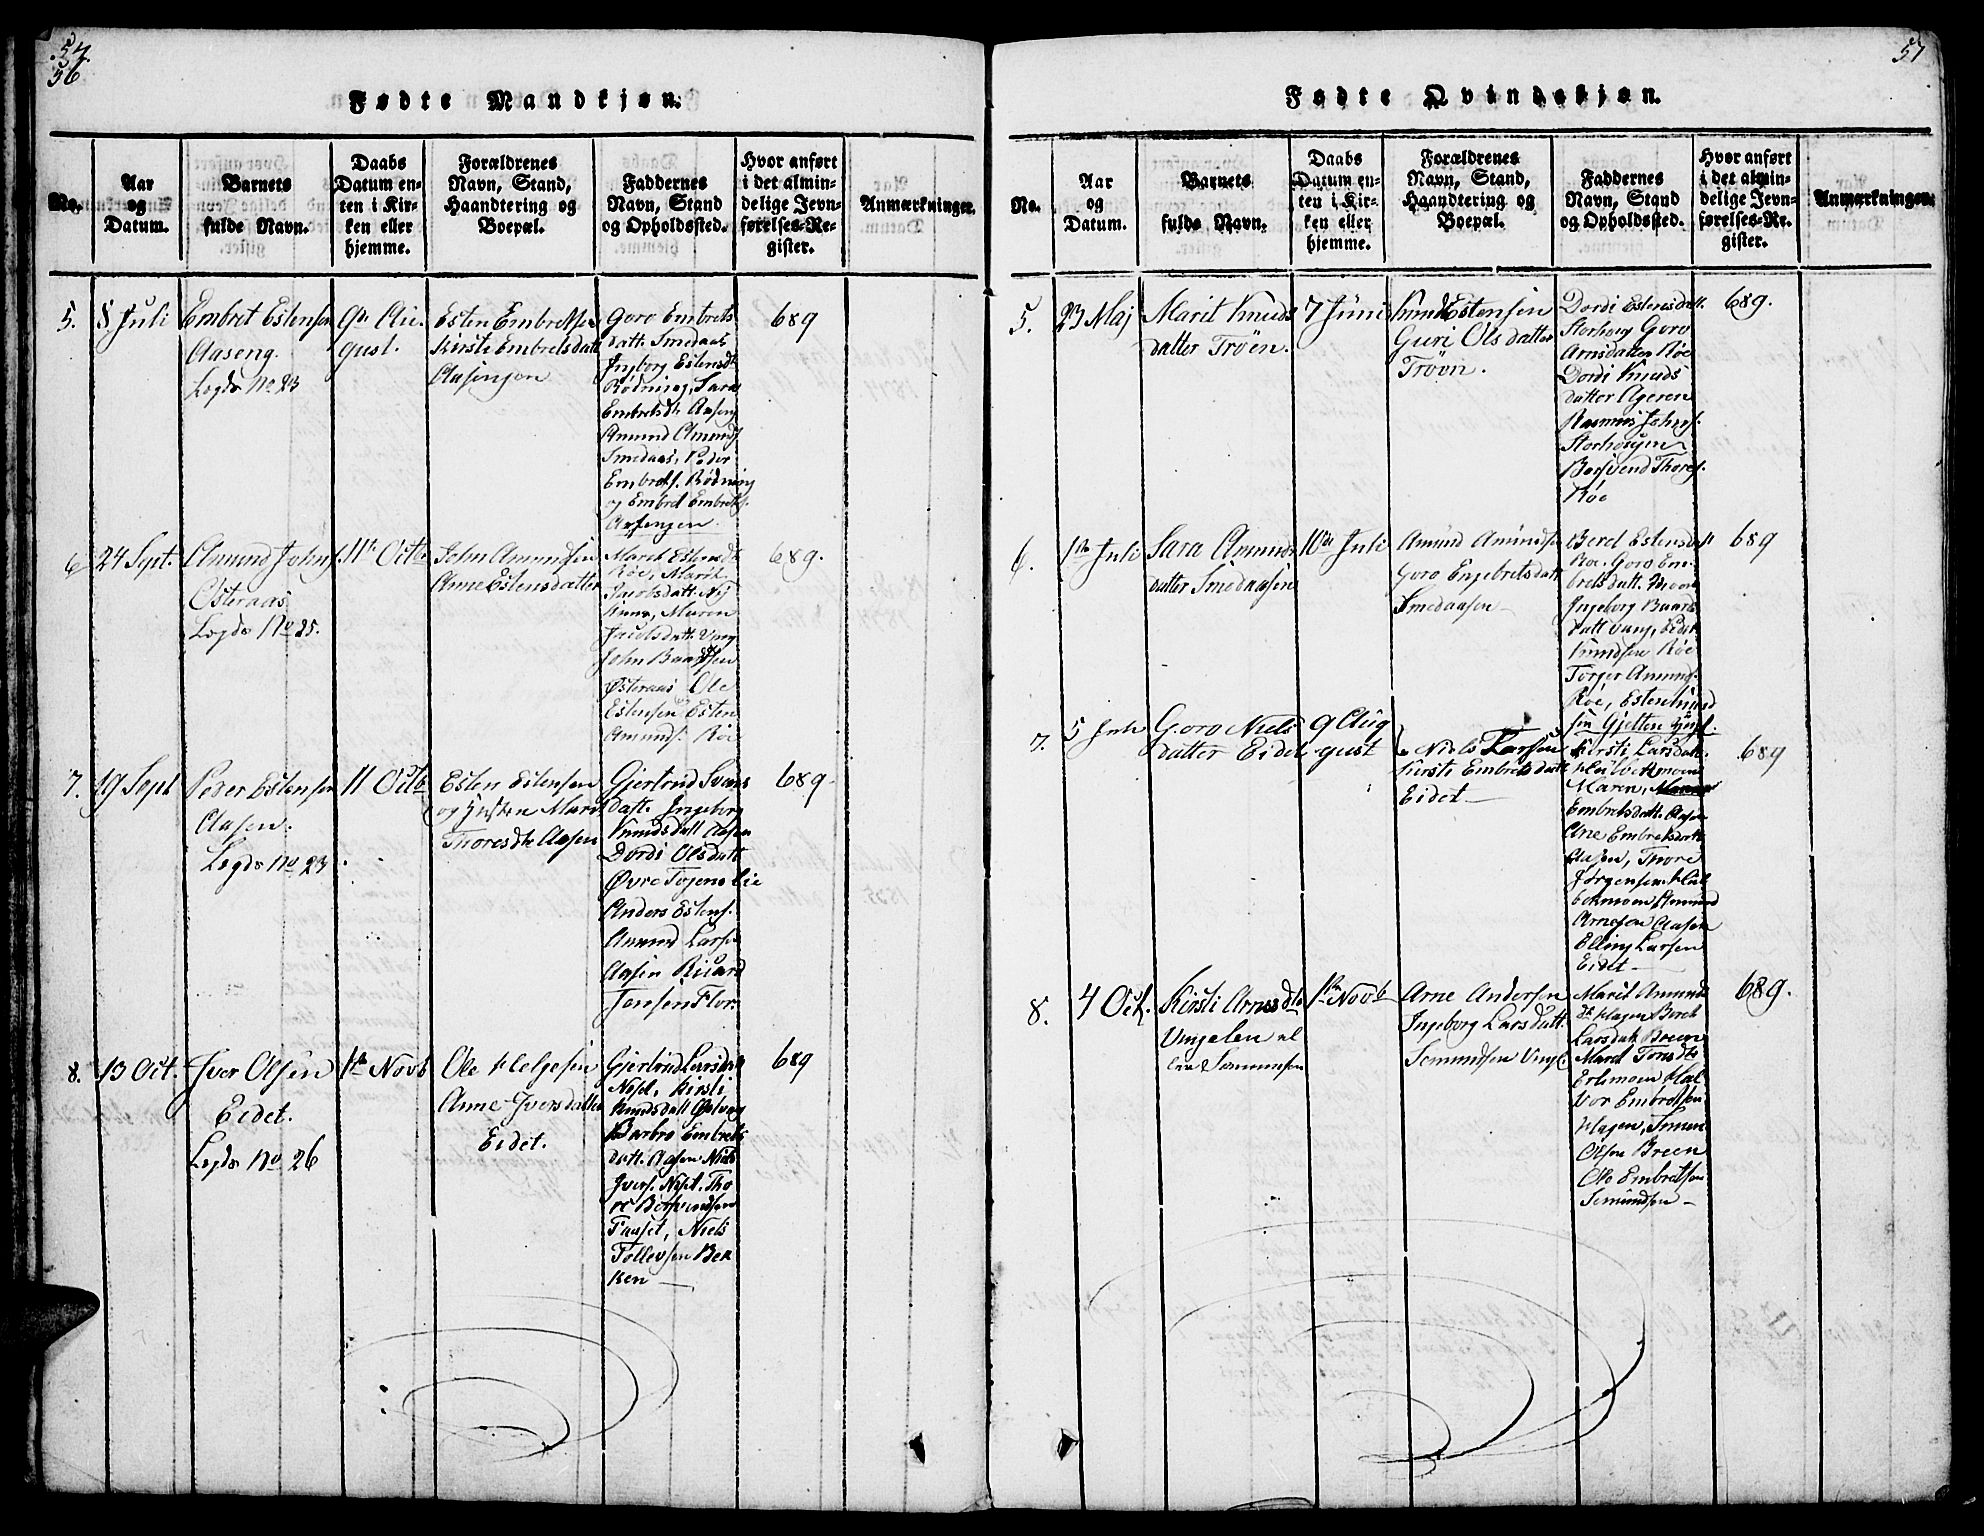 57.
56
Fødte Mandkjøn.
No.
Aar
og
Datum.
Barnets
fulde Navn.
Daabs
Datum en-
ten i Kir-
ken eller
hjemme.
Forældrenes
Navn, Stand,
Haandtering og
Boepæl.
Faddernes
Navn, Stand
og Opholdssted.
Hvor anført
i det almin-
delige Jevn-
førelses-Re-
gister.
Anmærkninger.
5.
8 Juli
Embret Estensen
Aaseng.
Legds No 23
9de Au-
gust.
Esten Embretsen
Kirsti Embretsdatt
Aasengen
Goro Embrets
datt. Smedaas
Ingborg Estensdt
Rødning, Sara
Embretsdt Aaseng
Amund Amunds.
Smedaas, Peder
Embrets. Rødning
og Embret Embrets.
Aasengen.
689
6
24 Sept.
Amund Johns.
Østeraas
Legds No 25.
11te Octbr
John Amundsen
Anne Estensdatter
Marit Estensdt
Røe, Marit
Jacobsdatt. Nij
Maren
Jacobsdatt. Vang
John Baardsen
Østeraas Ole
Estensen Esten
Amunds. Røe
689.
7.
19 Sept
Peder Estensen
Aasen.
Legds No 23
11 Octb
Esten Estensen
og Marit
Thoresdt Aasen
Gjertrud Svens
datt. Ingeborg
Knudsdatt Aasen
Dordi Olsdatt
Øvre
Anders Estens.
Amund Larsen
Aasen Ricard
Jensen Flor.
689.
8.
13 Oct.
Iver Olsen
Eidet.
Legds No 26
1te Novb
Ole Helgesen
Anne Iversdatter
Eidet.
Gjertrud Larsdatt
Kirsti
Knudsdatt
Barbro Embrets
datt. Aasen Niels
Ivers. Tho
re
Fauset, Niels
Tollevsen Bek
ken
689
57
Fødte Qvindekjøn.
No.
Aar
og
Datum.
Barnets
fulde Navn.
Daabs
Datum en-
ten i Kir-
ken eller
hjemme.
Forældrenes
Navn, Stand,
Haandtering og
Boepæl.
Faddernes
Navn, Stand
og Opholdssted.
Hvor anført
i det almin-
delige Jevn-
førelses-Re-
gister.
Anmærkninger.
5.
23 Maj
Marit Knuds
datter Trøen.
7 Juni
Knud Estensen
Guri Olsdatter
Trøen.
Dordi Estensdatt.
Storhoug Goro
Arnsdatter Røe
Dordi Knuds
datter Ageren
Rasmus Johns.
Storhougen
Bersvend Thores.
Røe
689.
6.
1ste Juli
Sara Amunds
datter Smedaasen
10de Juli
Amund Amundsen
Goro Engebretsdatt
Smedaasen
Beret Estensdatt
Røe. Goro Em-
bretsdatt. Moen
Ingeborg Baards
datt Vang, Peder
Knudsen Røe
Torger Amunds.
Røe, Esten Amund
sen Gjelten
689
7.
5 Juli
Goro Niels
datter Eidet
9 Aug
gust
Niels Larsen
Kirsti Embretsdatt
Eidet
Kirsti Larsdatt.
Hulbekmoen
Maren
Embretsdatt. Aasen
Ane Embretsdatt
Aasen, Thore
Jørgensen Hul
bekmoen Amund
Arnesen Aasen
Elling Larsen
Eidet
689
8.
4 Oct.
Kirsti Arnesdt
Vingelen al
ler Semundsen
1ste Novb
Arne Andersen
Ingeborg Larsdatt.
Semundsen Vingl.
Marit Amunds
dt Hagen Beret
Larsdatt Breen
Marit Torsdt
Erlimoen Hal
vor Embretsen
Hagen, Simen
Olsen Breen
Ole Embretsen
Semundsen
689.